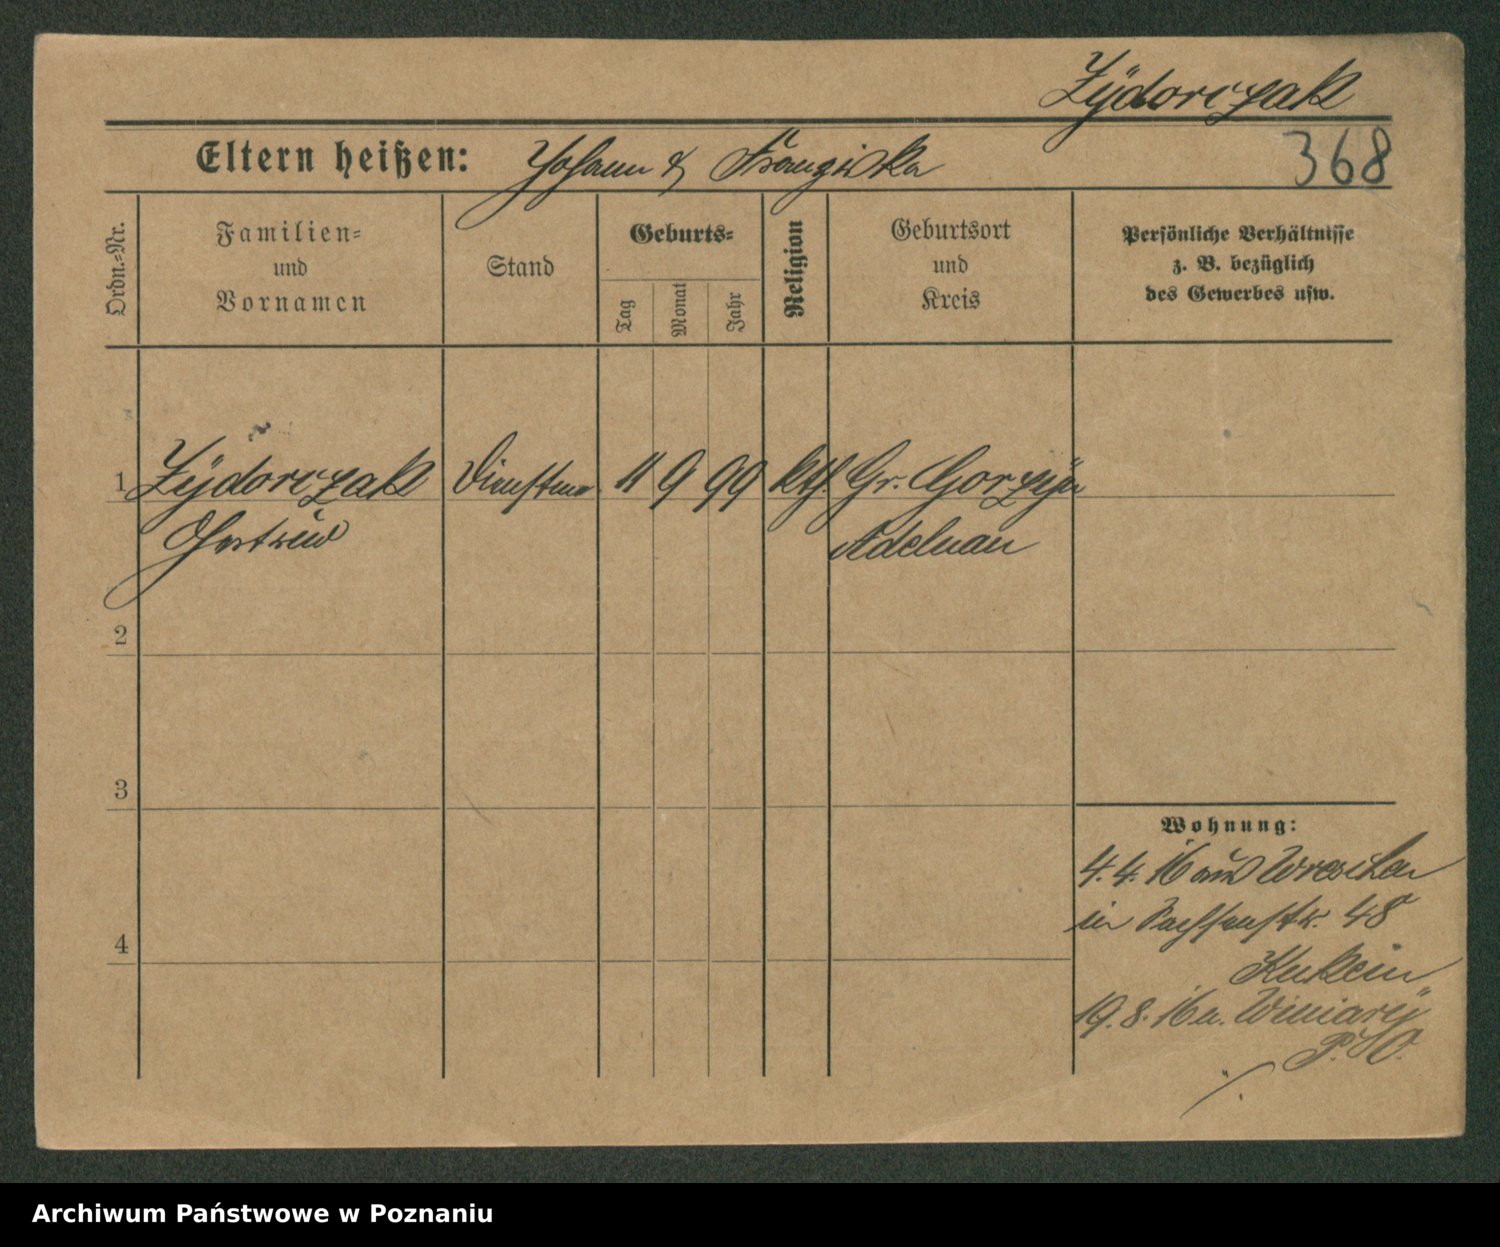 Zÿdorczak
Eltern heißen: Johann & Franziska
368
Ordn.-Nr.
Familien-
und
Vornamen
Stand
Geburts-
Tag
Monat
Jahr
Religion
Geburtsort
und
Kreis
Persönliche Verhältnisse
z. B. bezüglich
des Gewerbes usw.
1 Zÿdorczak 11 9 99 kth. Gr. Gorzÿce
Gertrud Adelnau
2
3
4
Wohnung:
4. 4. 16 aus Wreschen
in Sachsenstr. 48
19. 8. 16 n. Winiarÿ
P. O.
Archiwum Państwowe w Poznaniu